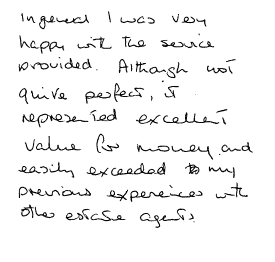 In general I was very
happy with the service
provided. Although not
quite perfect, it
represented excellent
value for money and
easily exceeded my
previous experiences with
other estate agents.